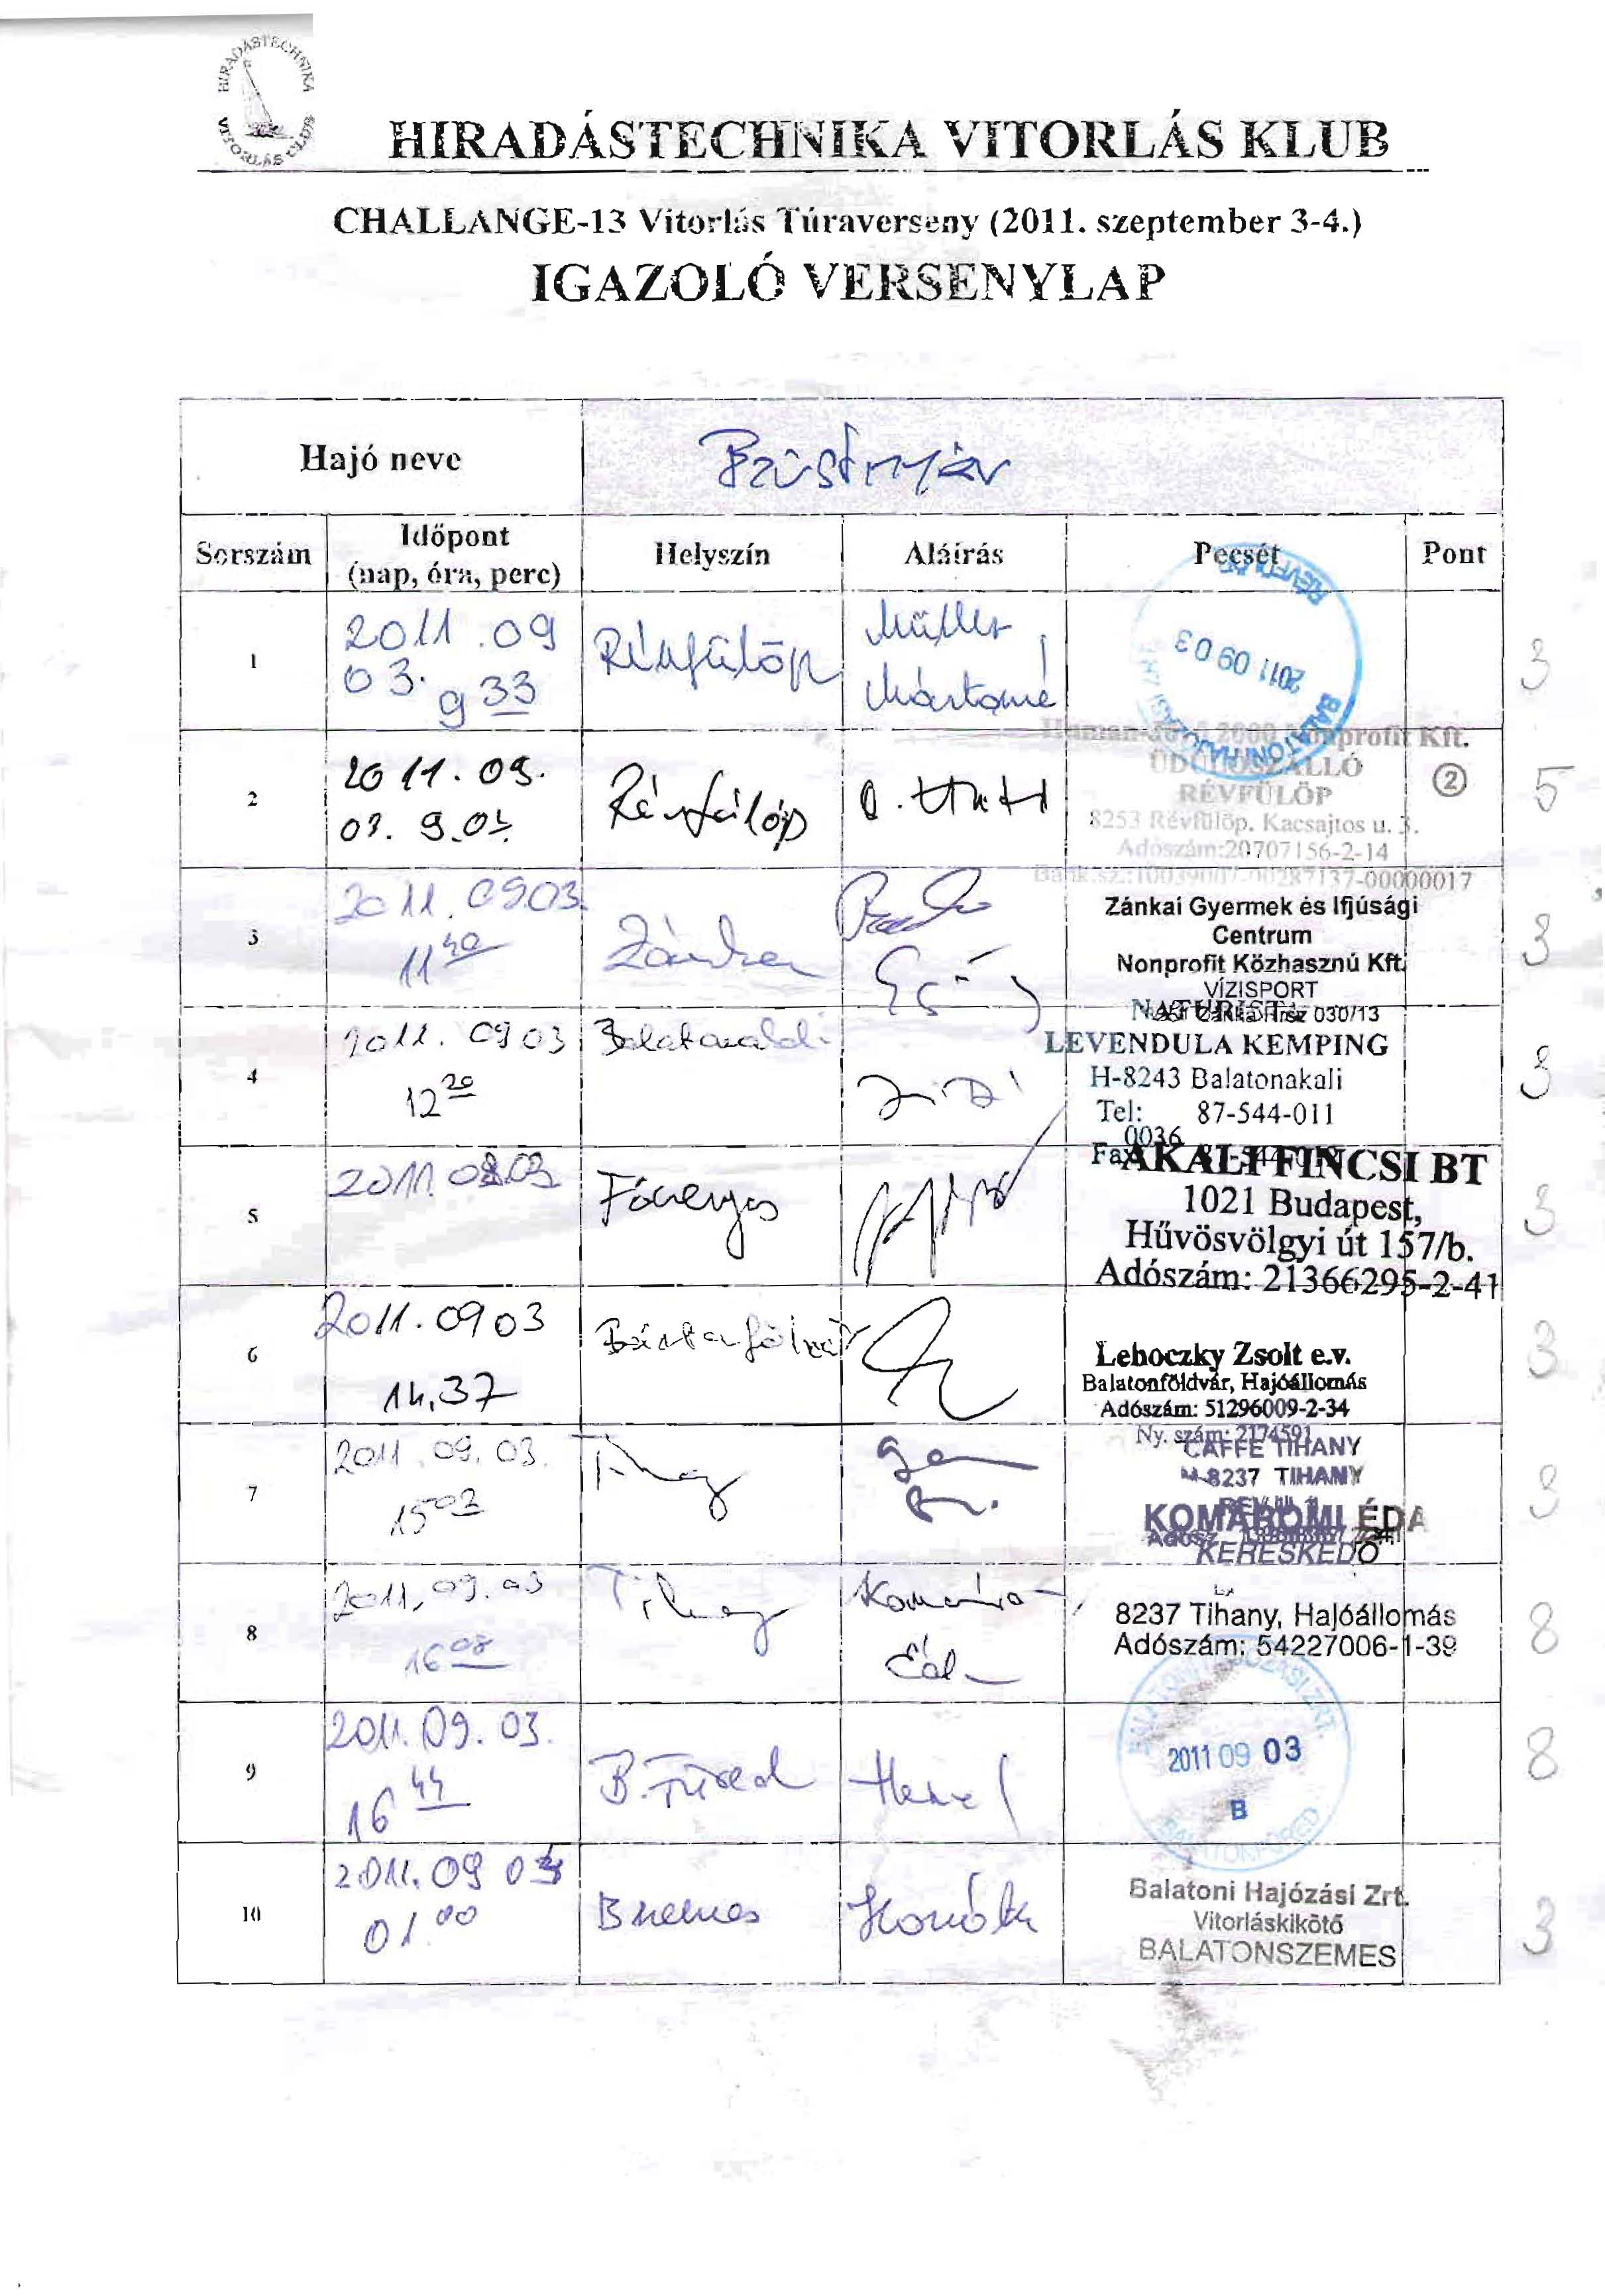 HIRADÁSTECHNIKA
VITORLÁS
HIRADÁSTECHNIKA VITORLÁS KLUB
CHALLANGE-13 Vitorlás Túraverseny (2011. szeptember 3-4.)
IGAZOLÓ VERSENYLAP
Hajó neve
Sorszám
Időpont
(nap, óra, perc)
Helyszín
Aláírás
Pecsét
Pont
1
2011.09
03.
9 33
Révfülöp
Müller
Mártoné
RÉVFÜLÖP
2011 09 03
3
2
2011.09.
03.
Révfülöp
Nonprofit Kft.
ÜDÜLŐSZÁLLÓ
RÉVFÜLÖP
8253 Révfülöp, Kacsajtos u. 3.
Adószám:20707156-2-14
2
5
3
2011.0903.
Zánka
Zánkai Gyermek és Ifjúsági
Centrum
Nonprofit Közhasznú Kft.
VÍZISPORT
3
4
2011. 0903
12 20
NATURIST
LEVENDULA KEMPING
H-8243 Balatonakali
Tel: 87-544-011
0036
3
5
2011.
Fövenyes
AKALI FINCSI BT
1021 Budapest,
Hűvösvölgyi út 157/b.
Adószám: 21366295-2-41
3
6
2011.0903
14,37
Lehoczky Zsolt e.v.
Balatonföldvár, Hajóállomás
Adószám: 51296009-2-34
Ny. szám: 2174591
3
7
2011.09.03.
15 03
Tihany
CAFFE TIHANY
H-8237 TIHANY
3
8
2011.09.03
16 08
Tihany
KOMÁROMI ÉDA
KERESKEDŐ
8237 Tihany, Hajóállomás
Adószám: 54227006-1-39
8
9
2011.09.03.
16 44
B.Füred
2011 09 03
B
BALATONFÜRED
8
10
2011.09
01.00
Bszemes
Balatoni Hajózási Zrt.
Vitorláskikötő
BALATONSZEMES
3